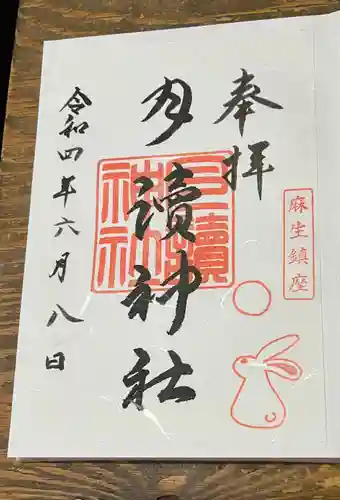 奉拝
麻生鎮座
月讀神社
月讀神社
令和四年六月八日